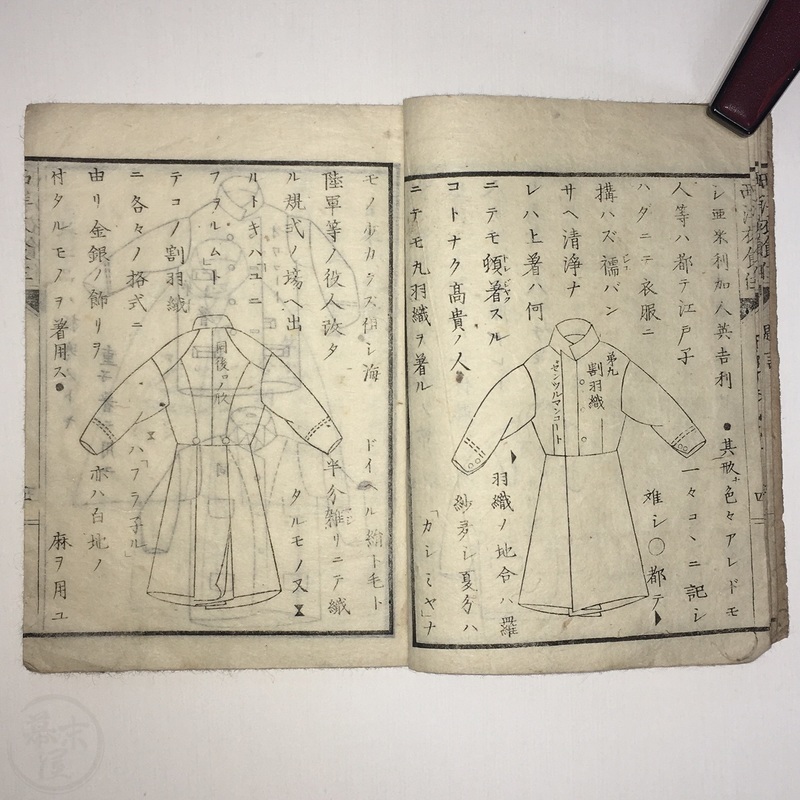 シ亜米利加人英吉利
人等ハ都テ江戸子
ハダニテ衣服ニ
搆ハズ襦バン
サヘ清浄ナ
レハ上着ハ何
ニテモ頓着スル
コトナク高貴ノ人
ニテモ丸羽織ヲ着ル
●其形色々アレドモ
一々コヽニ記シ
難シ〇都テ
羽織ノ地合ハ羅
紗多シ夏分ハ
「カシミヤ」ナ
第九
割羽織
ゼンツルマンコート
モノ少カラズ但シ海
陸軍等ノ役人改タ
ル規式ノ場ヘ出
ルトキハ「ユニ
フヲルム」ト
テコノ割羽織
ニ各々ノ格式ニ
由リ金銀ノ飾リヲ
付タルモノヲ着用ス●
ドイヘル絹ト毛ト
半分雑リニテ織
タルモノ又
ハ「フラ子ル」
亦ハ白地ノ
麻ヲ用ユ
同後ロノ形
幕末屋